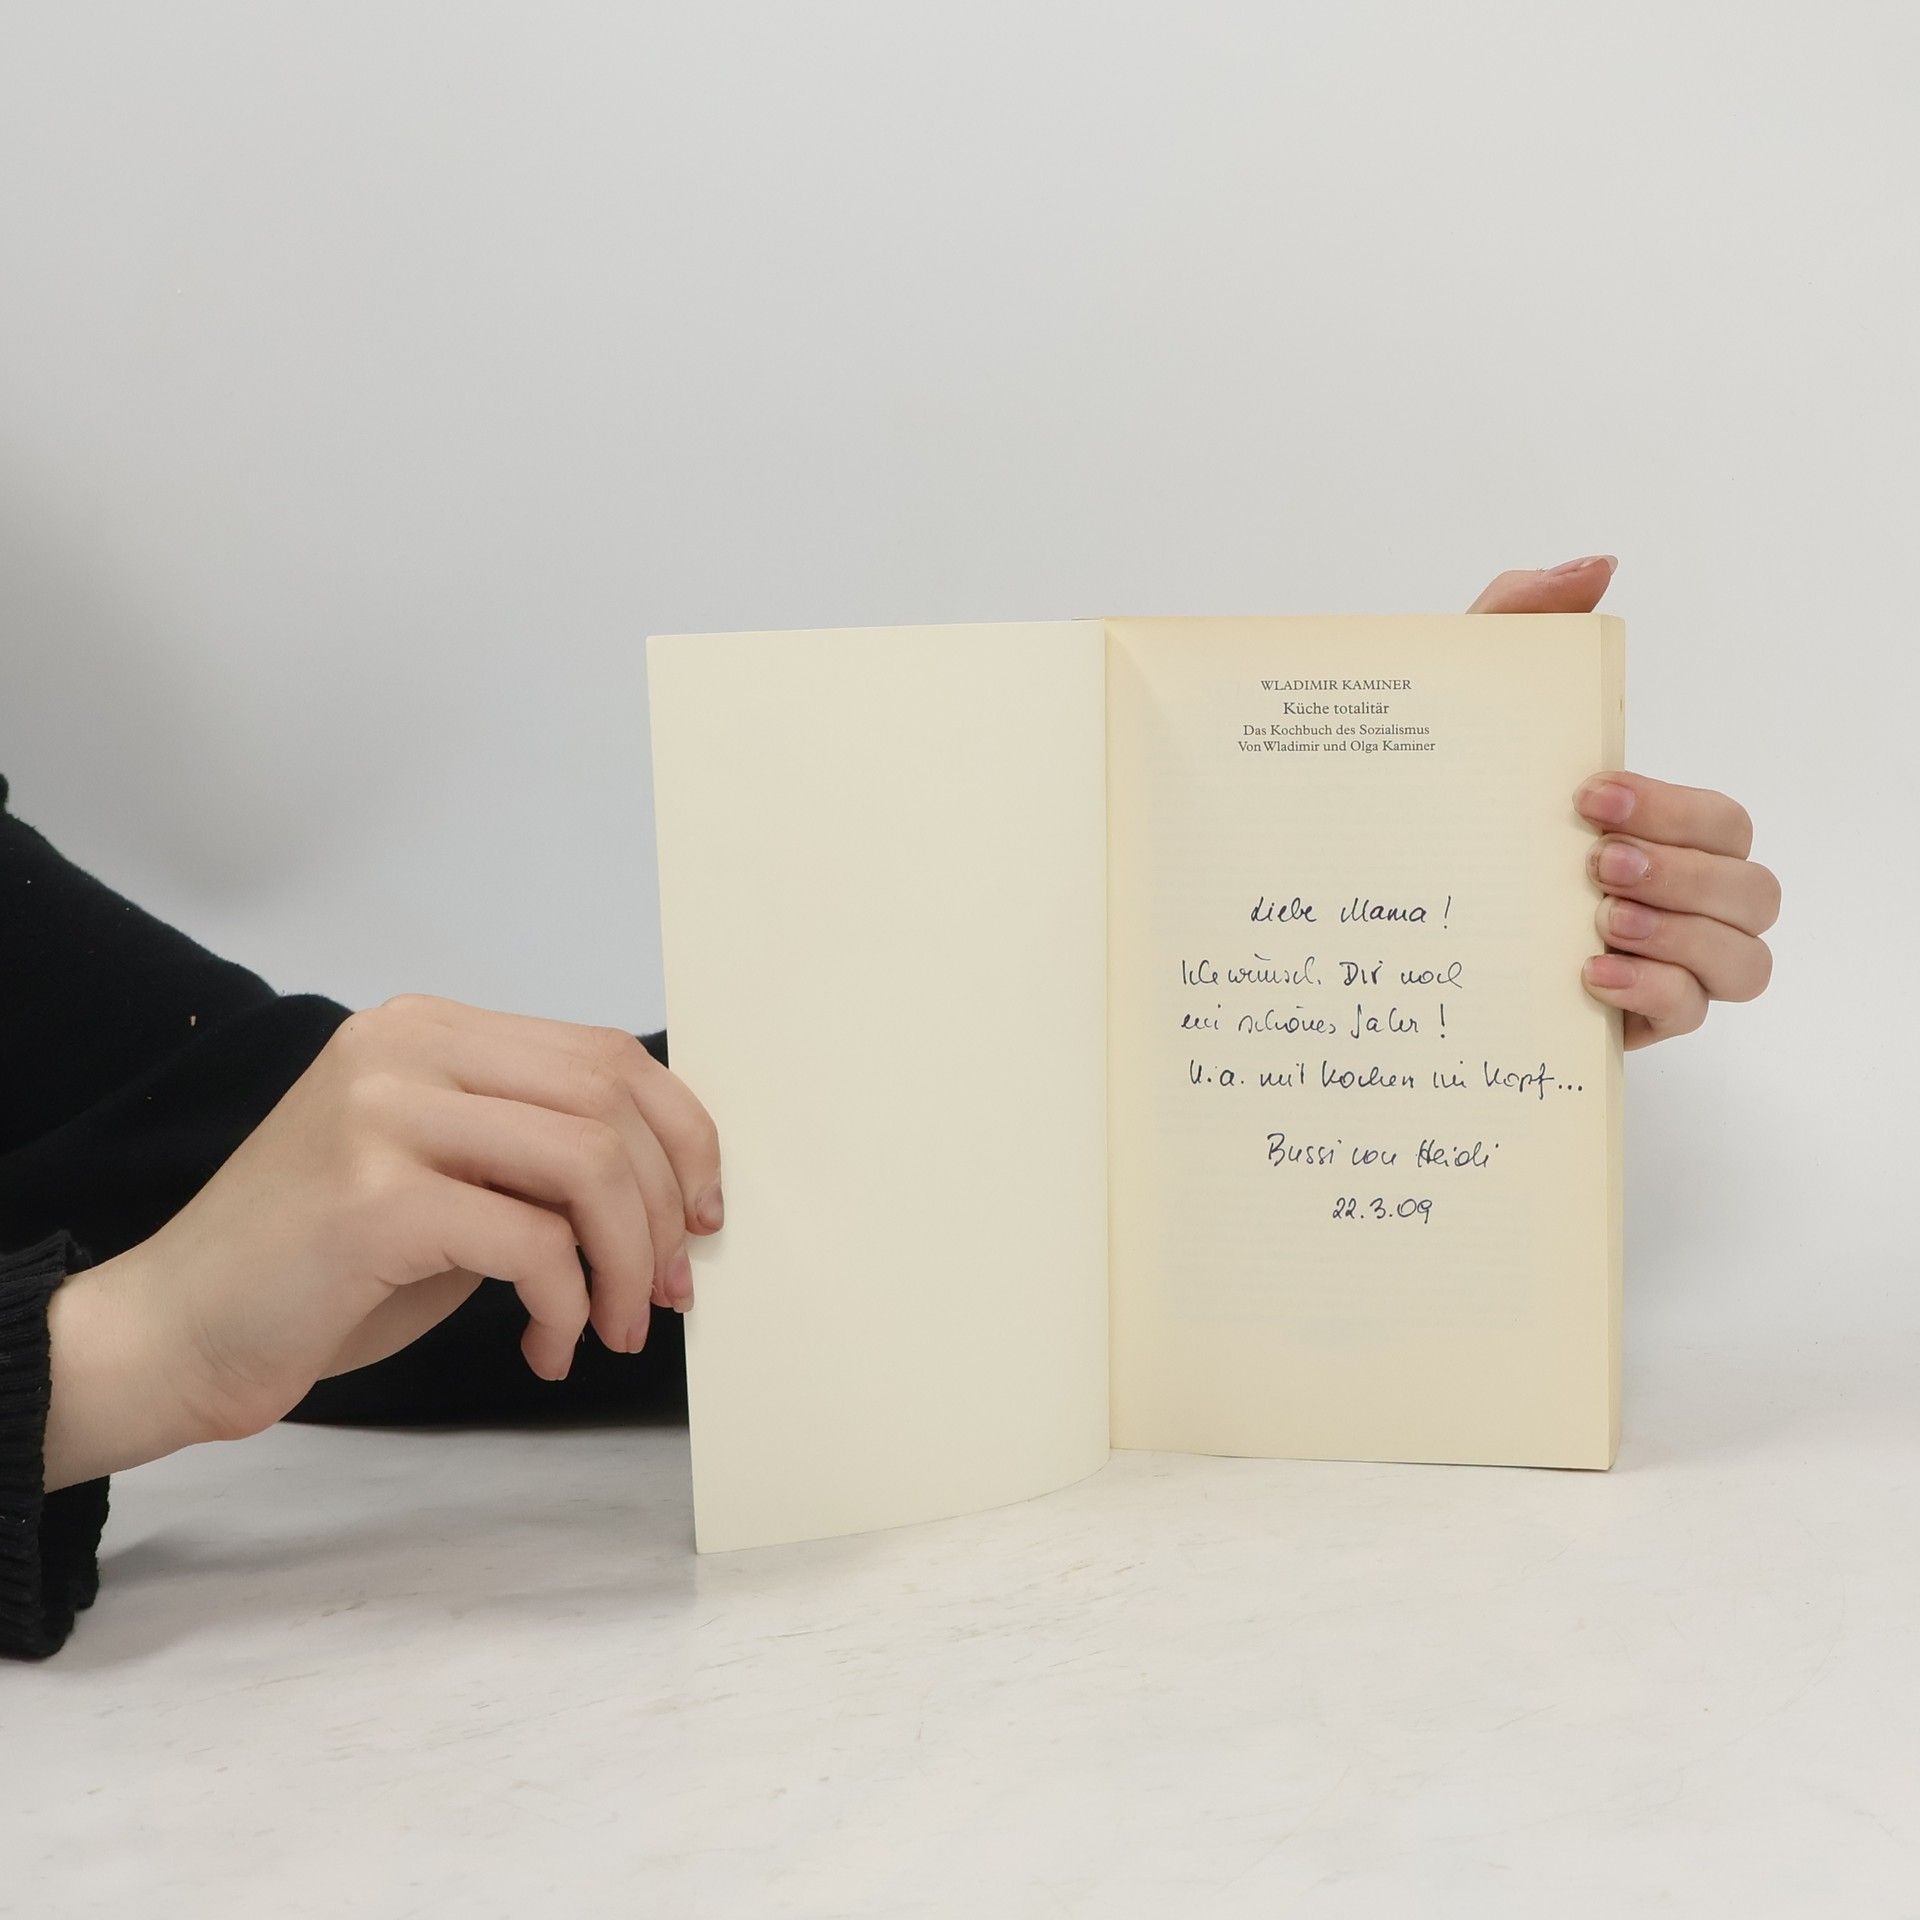 WLADIMIR KAMINER
Küche totalitär
Das Kochbuch des Sozialismus
Von Wladimir und Olga Kaminer
Liebe Mama!
Ich wünsch. Dir noch
ein schönes Jahr!
U.a. mit Kochen im Kopf...
Bussi von Heidi
22.3.09